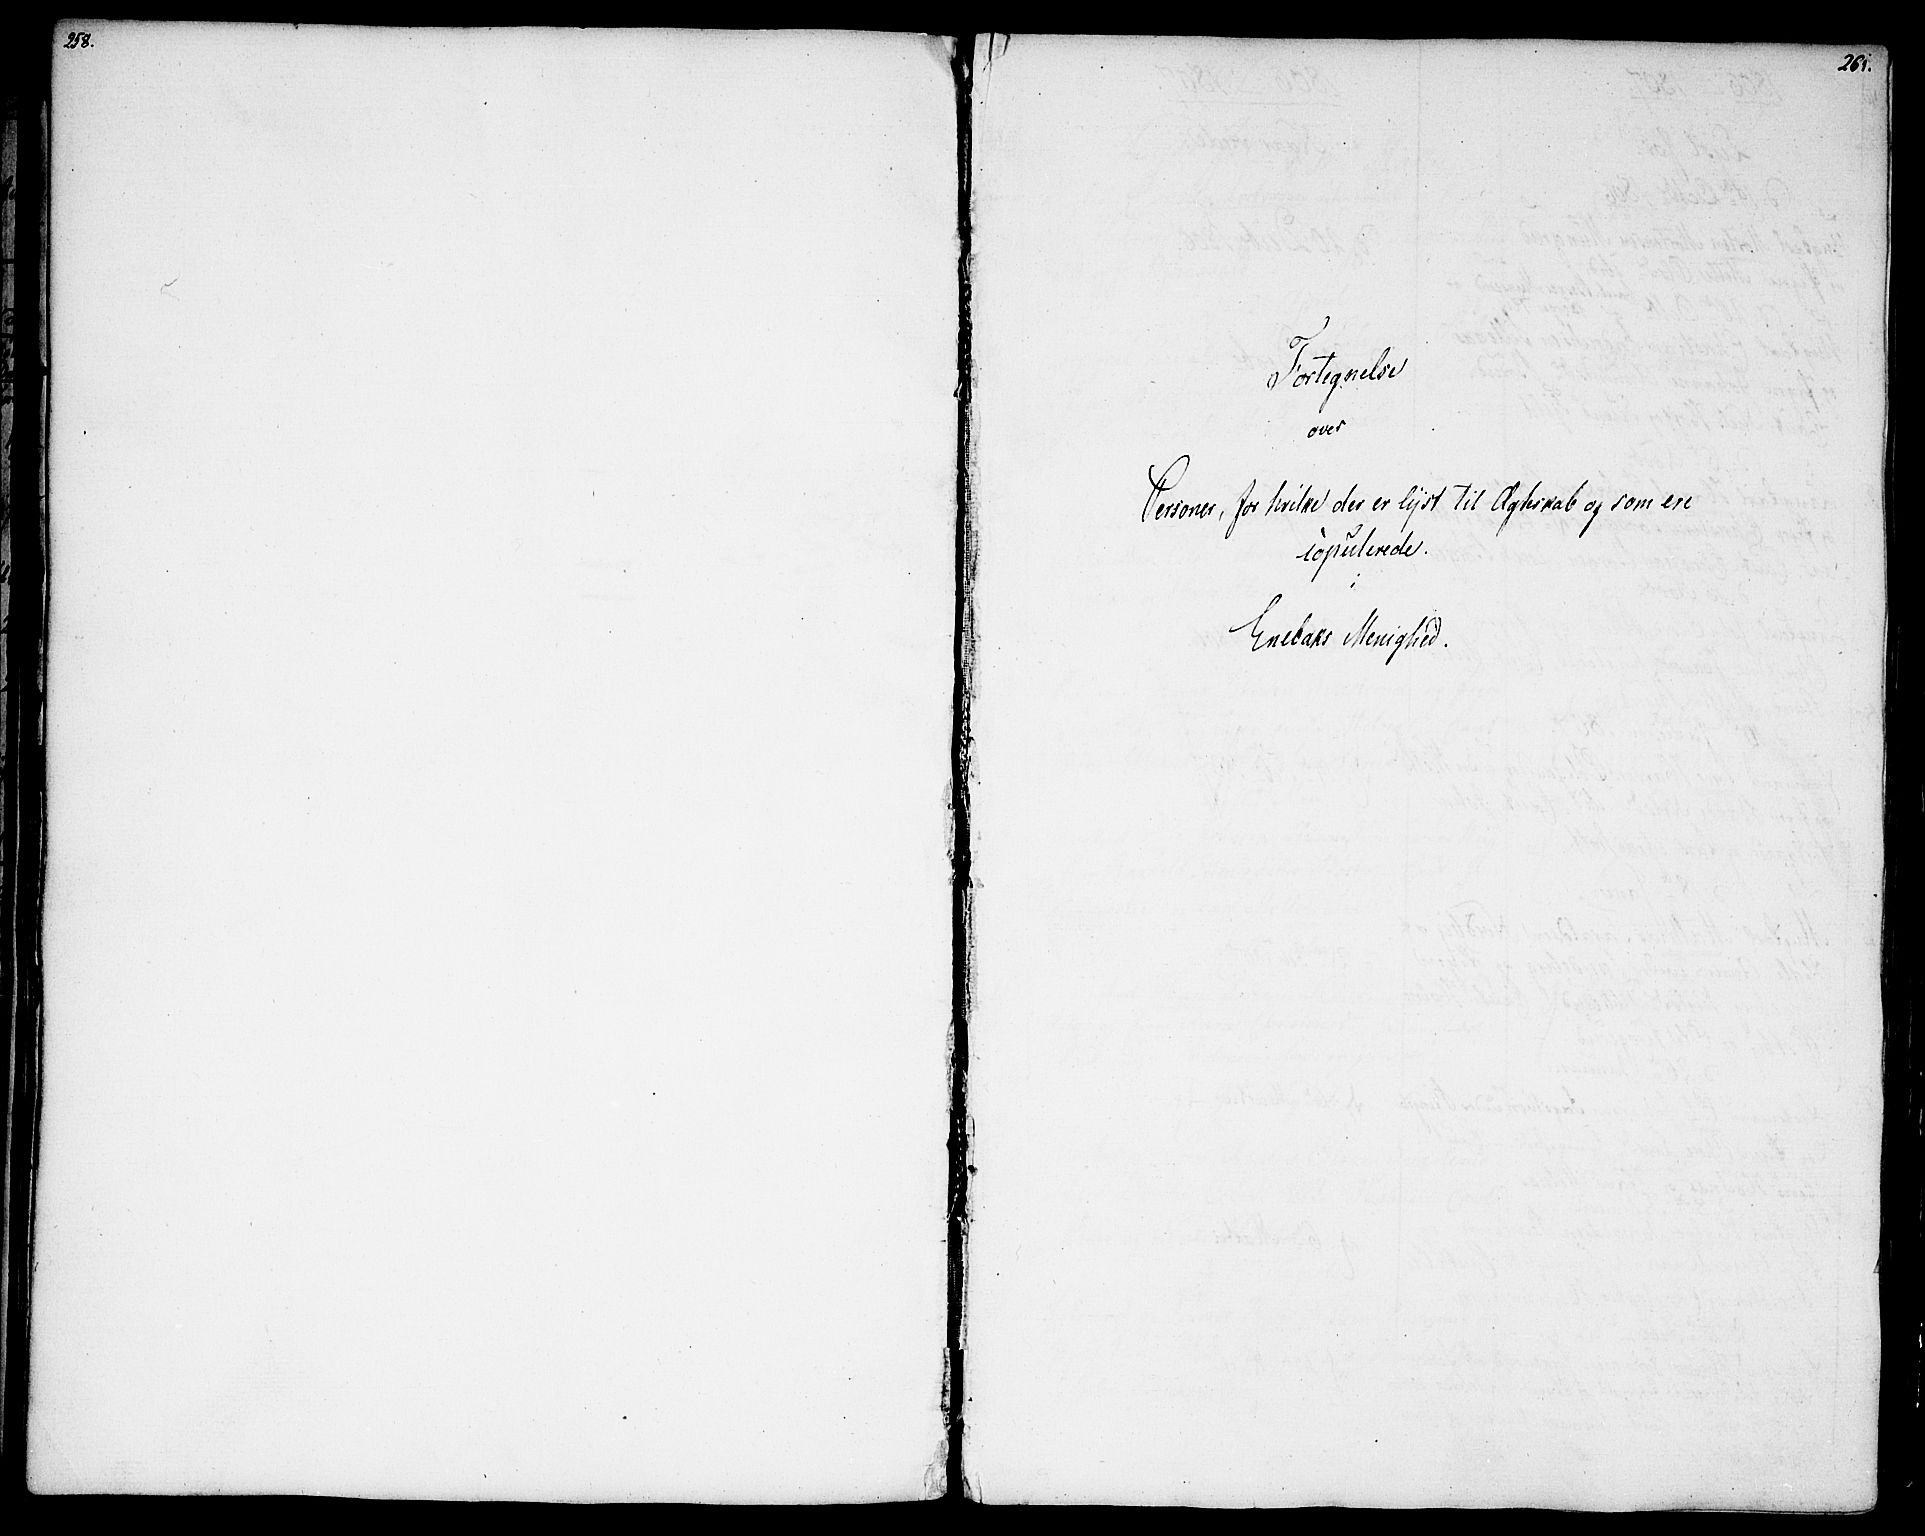 258.
261.
Fortegnelse
over
Personer, for hvilke der er lyst til Ægteskab og som ere
copulerede.
i
Enebaks Menighed.